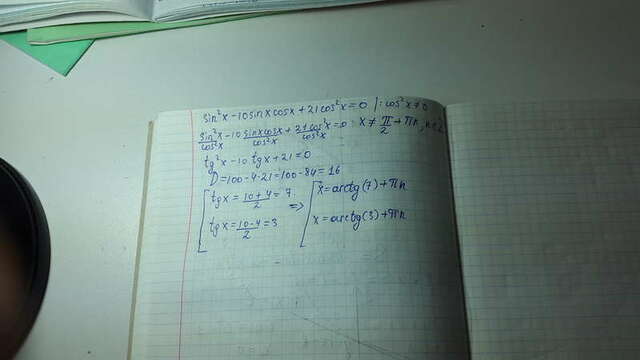 sin²x - 10 sinx cosx + 21 cos²x = 0 | : cos²x ≠ 0
sin²x/cos²x - 10 sinx cosx/cos²x + 21 cos²x/cos²x = 0 x ≠ π/2 + πn, n∈Z
tg²x - 10 tgx + 21 = 0
D = 100 - 4·21 = 100 - 84 = 16
[ tgx = (10+4)/2 = 7 => [ x = arctg(7) + πn
tgx = (10-4)/2 = 3 x = arctg(3) + πn